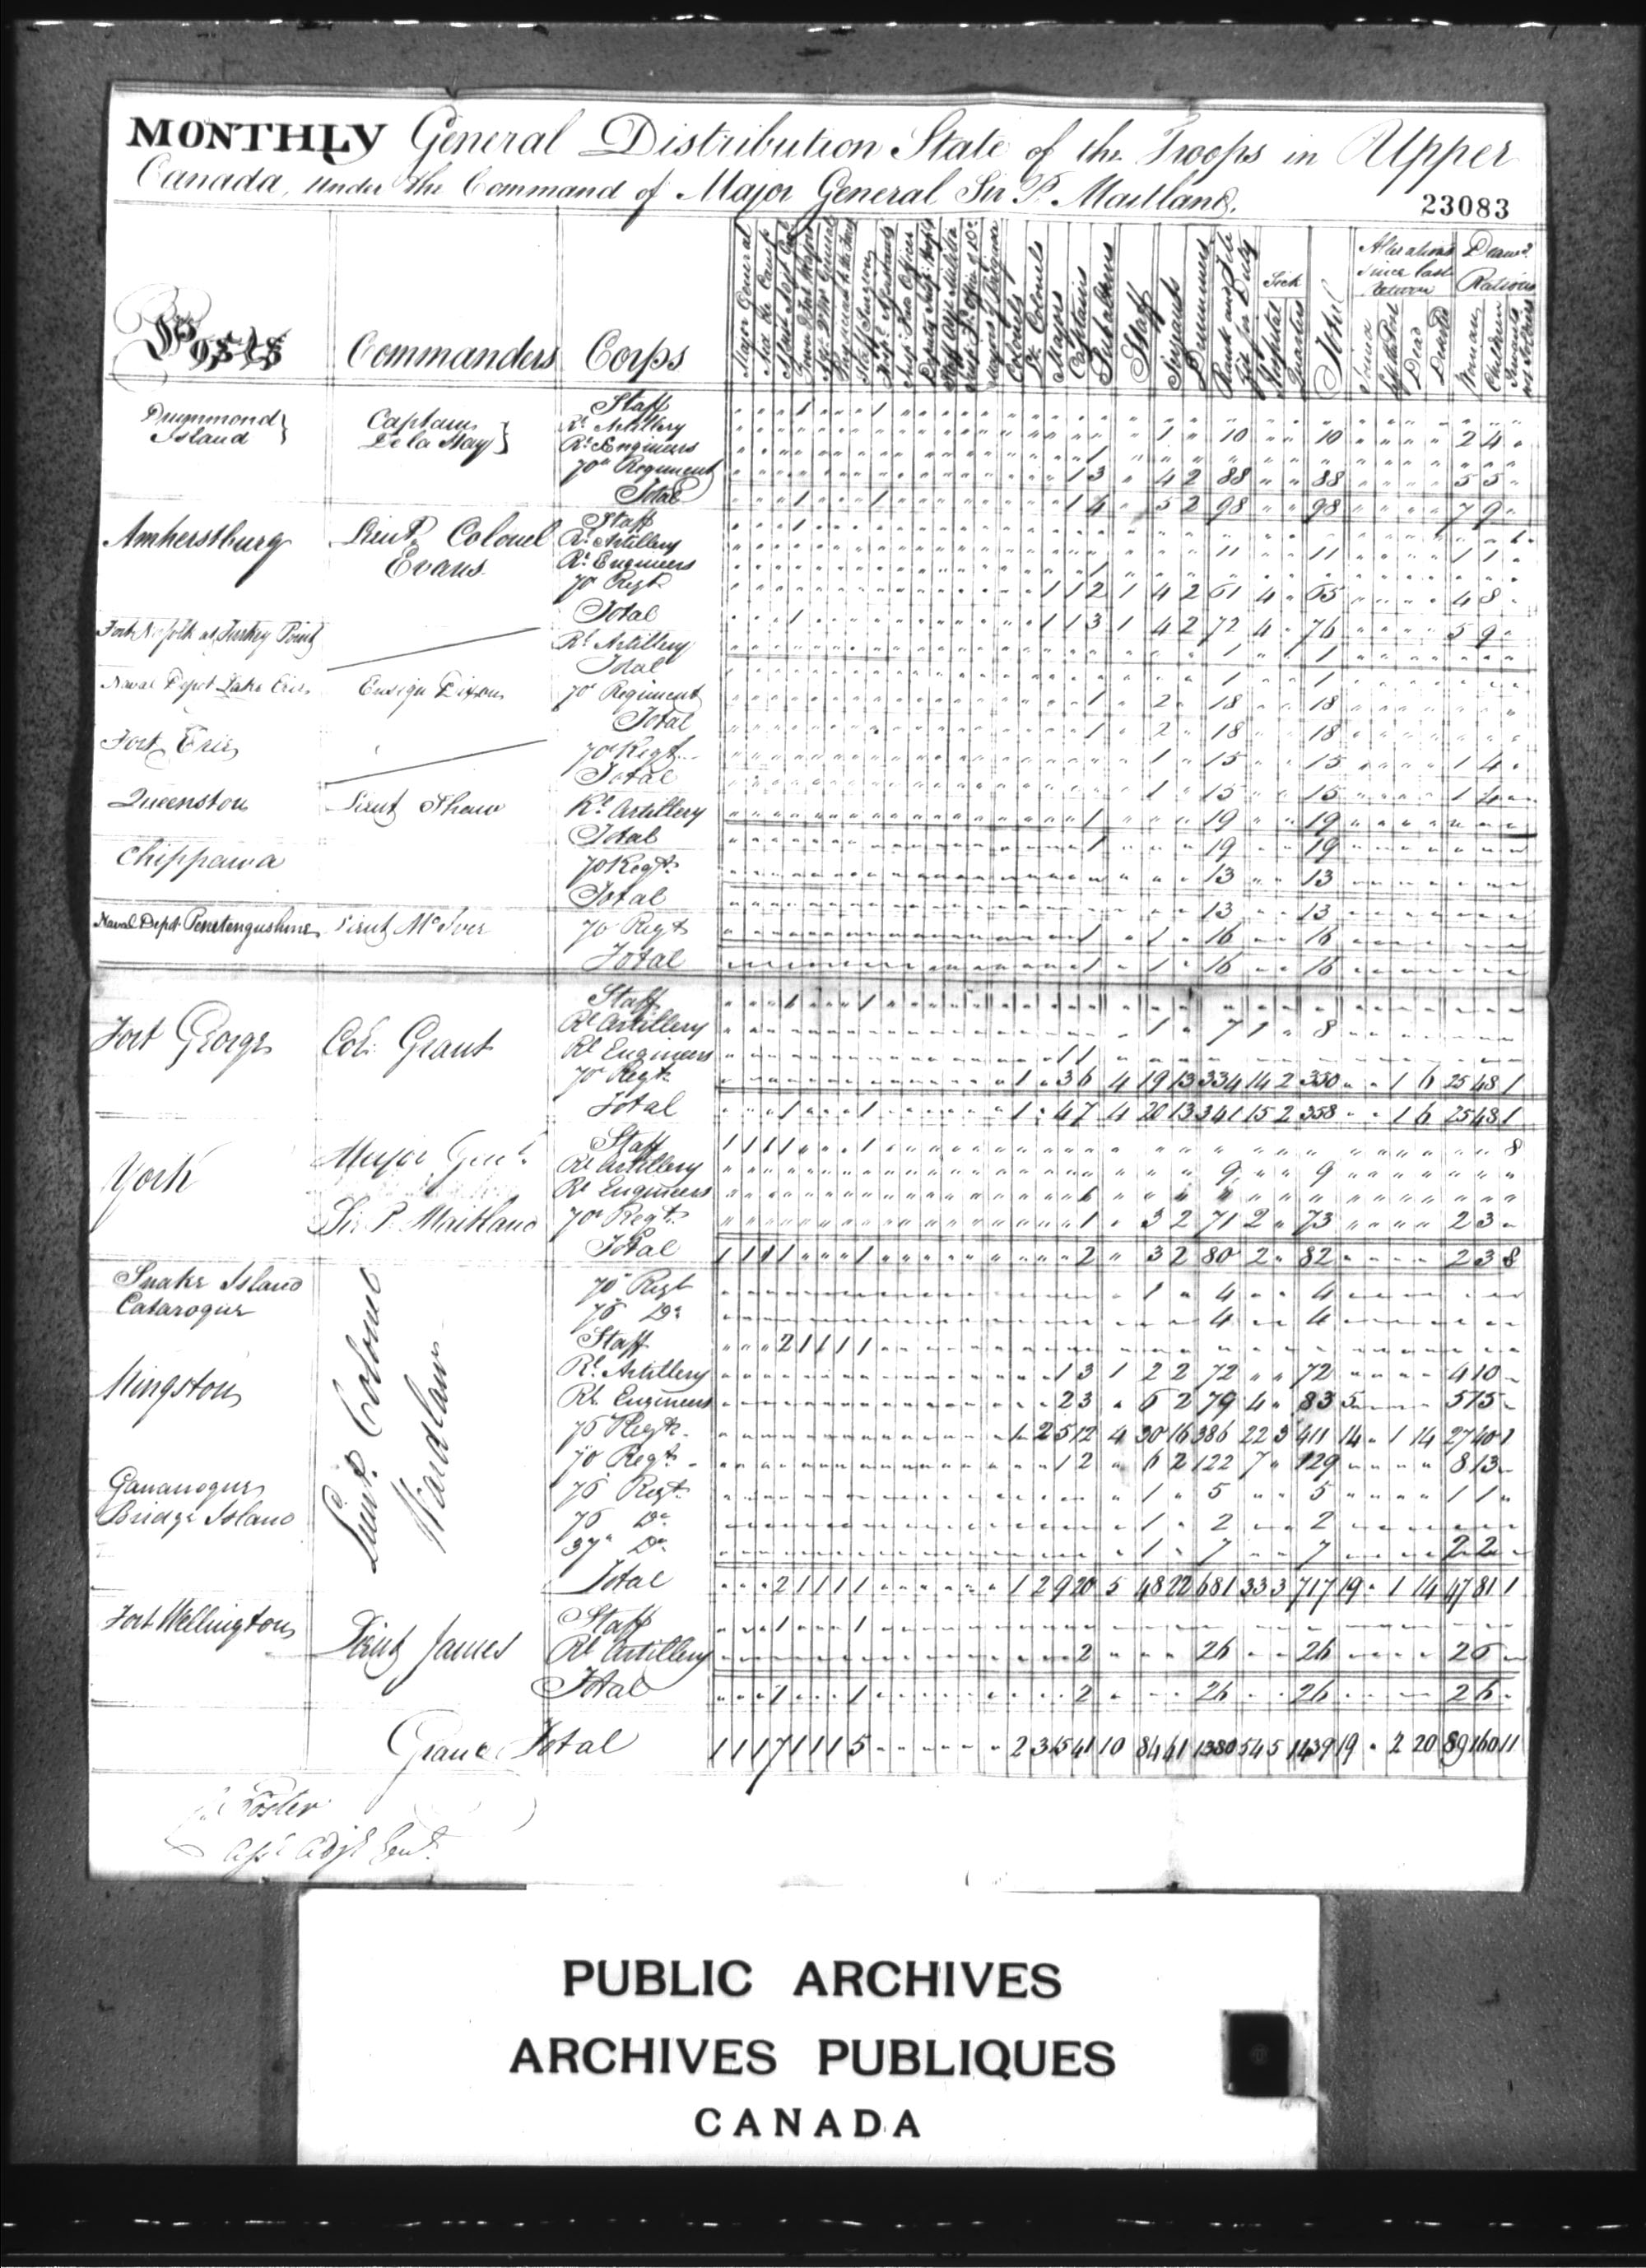 MONTHLY General Distribution State of the Troops in Upper
Canada, under the Command of Major General Sir P. Maitland.
23083
Posts Commanders Corps Major General Colonels Lt Colonels Majors Captains Subalterns Staff Sergeants Drummers Rank and File Fit for Duty Sick Hospital Quarters Total Alterations since last Return Joined Dead Rations Women Children
Drummond Island } Captain De la Hay } Staff " " " 1 " " " 1
Rl Artillery 1 " 10 " " 10 " " " " 2 4 "
Rl Engineers 1
70th Regiment 1 3 " 4 2 88 " " 88 " " " " 5 5 "
Total " " " 1 " " " 1 1 4 " 5 2 98 " " 98 " " " " 7 9 "
Amherstburg Lieut Colonel Evans Staff " " " 1
Rl Artillery 11 " " 11 " " " " 1 1 "
Rl Engineers 1
70th Regt 1 1 2 1 4 2 61 4 " 65 " " " " 4 8 "
Total " " " 1 1 1 3 1 4 2 72 4 " 76 " " " " 5 9 "
Fort Norfolk at Turkey Point Rl Artillery 1 " " 1
Total 1 " " 1
Naval Depot Lake Erie Ensign Dixon 70th Regiment 1 " 2 " 18 " " 18
Total 1 " 2 " 18 " " 18
Fort Erie 70th Regt 1 " 15 " " 15 " " " " 1 4 "
Total 1 " 15 " " 15 " " " " 1 4 "
Queenston Lieut Shaw Rl Artillery 1 " " " 19 " " 19
Total 1 " " " 19 " " 19
Chippawa 70 Regt 13 " " 13
Total 13 " " 13
Naval Dept Penetengushine Lieut McIver 70 Regt 1 " 1 " 16 " " 16
Total 1 " 1 " 16 " " 16
Fort George Col. Grant Staff " " " 1 " " " 1
Rl Artillery 1 " 7 1 " 8
Rl Engineers 1 1
70th Regt 1 " 3 6 4 19 13 334 14 2 350 " " 1 6 25 48 1
Total " " " 1 " " " 1 1 " 4 7 4 20 13 341 15 2 358 " " 1 6 25 48 1
York Major Genl. Sir P. Maitland Staff 1 1 1 1 " " " 1 8
Rl Artillery 9 " " 9
Rl Engineers
70th Regt. 1 " 3 2 71 2 " 73 " " " " 2 3 "
Total 1 1 1 1 " " " 1 2 " 3 2 80 2 " 82 " " " " 2 3 8
Snake Island 70th Regt 1 " 4 " " 4
Lieut. Colonel Wardlaw
Cataroque 76 Do 4 " " 4
Kingston Staff " " " 2 1 1 1 1
Rl Artillery 1 3 1 2 2 72 " " 72 " " " " 4 10 "
Rl Engineers 2 3 " 6 2 79 4 " 83 5 " " " 5 15 "
76 Regt. 1 2 5 12 4 30 16 386 22 3 411 14 " 1 14 27 40 1
70 Regt. 1 2 " 6 2 122 7 " 129 " " " " 8 13 "
Gananoque 76 Regt. 1 " 5 " " 5 " " " " 1 1 "
Bridge Island 76 Do 1 " 2 " " 2
37th Do 1 " 7 " " 7 " " " " 2 2 "
Total " " " 2 1 1 1 1 1 2 9 20 5 48 22 681 33 3 717 19 " 1 14 47 81 1
Fort Wellington Lieut James Staff " " " 1 " " " 1
Rl Artillery 2 " " " 26 " " 26 " " " " 2 6 "
Total " " " 1 " " " 1 2 " " " 26 " " 26 " " " " 2 6 "
Grand Total 1 1 1 7 1 1 1 5 2 3 15 41 10 84 41 1380 54 5 1439 19 " 2 20 89 160 11
Foster
Adjt Genl.
PUBLIC ARCHIVES
ARCHIVES PUBLIQUES
CANADA